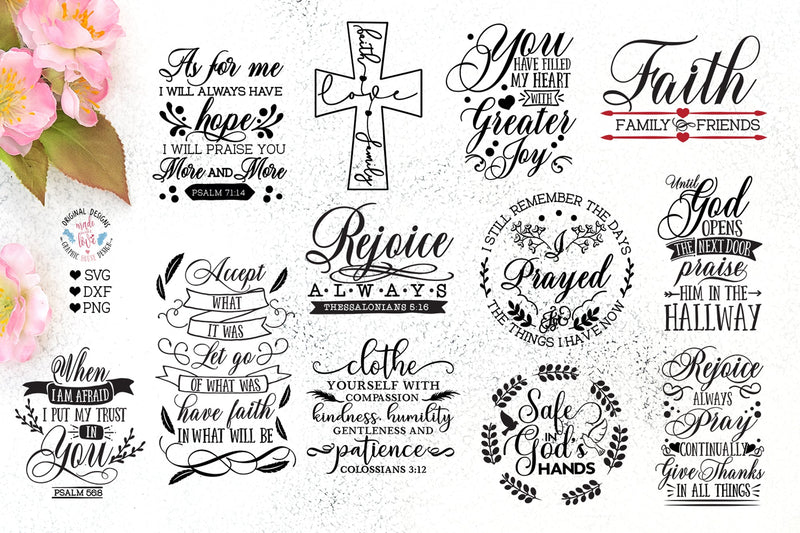 As for me
I WILL ALWAYS HAVE
hope
I WILL PRAISE YOU
More AND More
PSALM 71:14
faith
love
family
You
HAVE FILLED
MY HEART
WITH
Greater
Joy
Faith
FAMILY & FRIENDS
ORIGINAL DESIGNS
made
love
GRAPHIC HOUSE DESIGN
SVG
DXF
PNG
Accept
WHAT
IT WAS
Let go
OF WHAT WAS
have faith
IN WHAT WILL BE
Rejoice
ALWAYS
THESSALONIANS 5:16
I STILL REMEMBER THE DAYS
I
Prayed
for
THE THINGS I HAVE NOW
Until
God
OPENS
THE NEXT DOOR
praise
HIM IN THE
HALLWAY
When
I AM AFRAID
I PUT MY TRUST
IN
You
PSALM 56:8
clothe
YOURSELF WITH
COMPASSION
kindness, humility
GENTLENESS AND
patience
COLOSSIANS 3:12
Safe
IN
God's
HANDS
Rejoice
ALWAYS
Pray
CONTINUALLY
Give Thanks
IN ALL THINGS